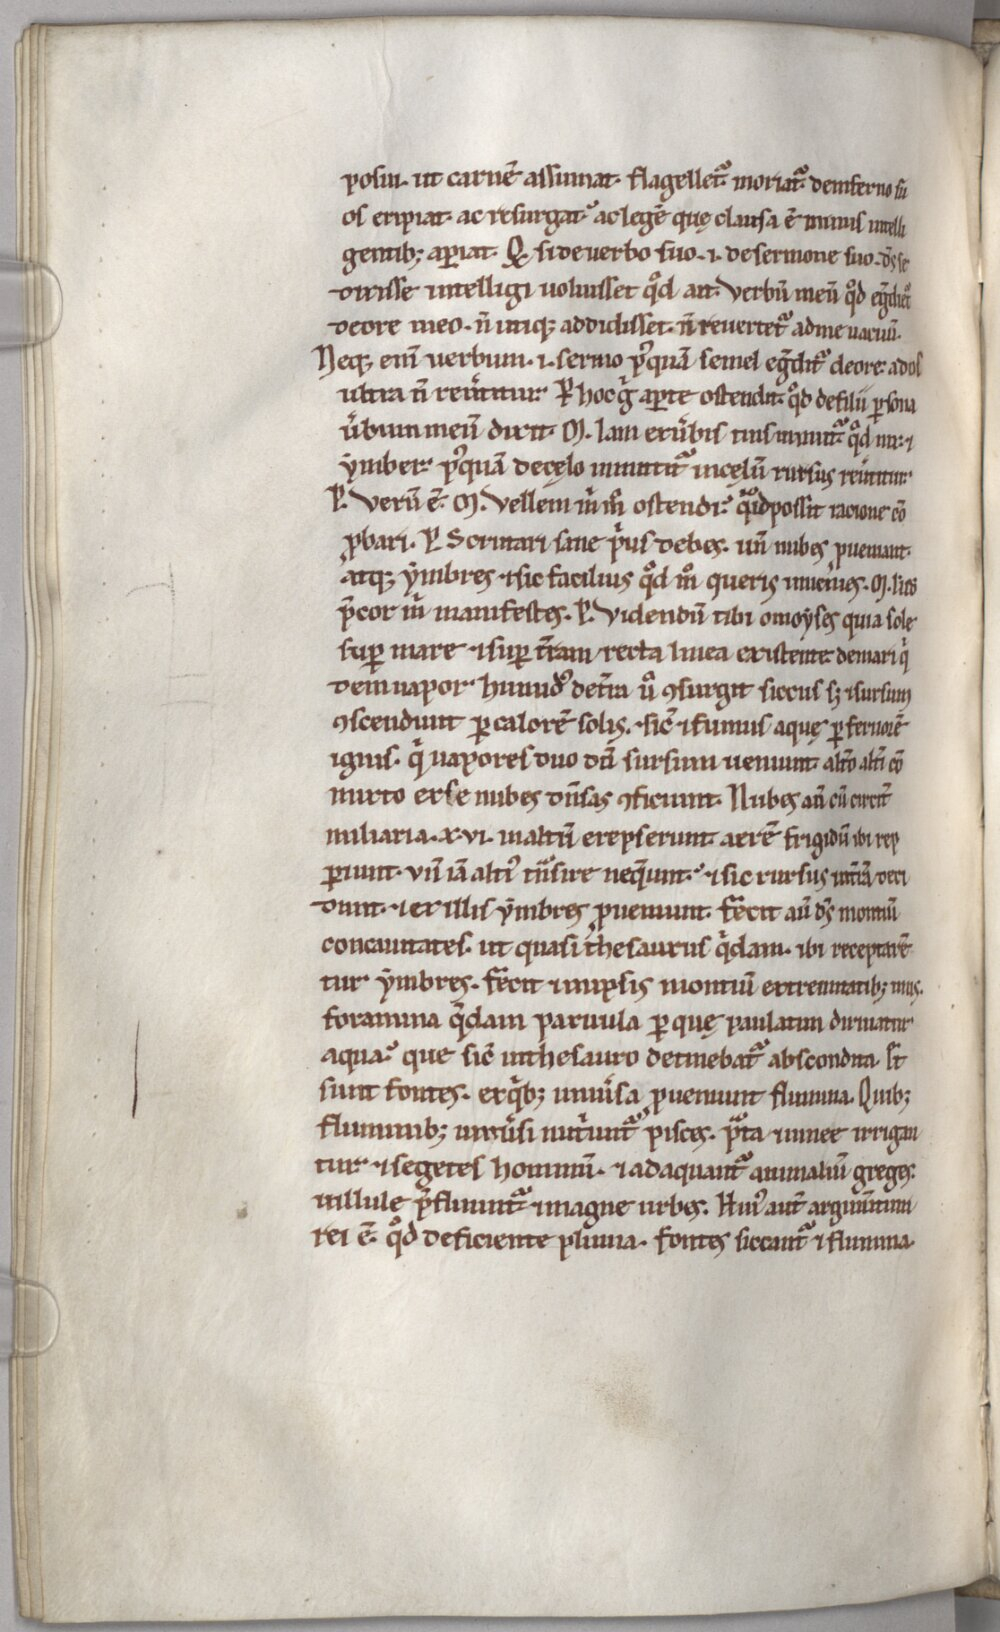 posui. ut carnē assumat. flagelletᷣ. moriatᷣ. deinferno su
os eripiat. ac resurgat. ac legē quę clausa ē minus intelli
gentib; aꝑiat. Q̊ si de uerbo suo. i. de sermone suo. dn̄s se
dixisse intelligi uoluisset qͦd ait. Verbū meū qͦd egͣdietᷣ
de ore meo. n̄ utiq; addidisset. n̄ reuertetᷣ ad me uacuū.
Neq; enī uerbum. i. sermo pͦquā semel egͣditᷣ de ore. ad os
ultra n̄ reũtitur. P. hoc gͦ aꝑte ostendit. qͦd de filii ꝑsona
ũbum meū dixit. M. Iam exũbis tuis innuitᷣ. qͦd nix. ⁊
ymber. pͦquā de cęlo mittitᷣ in cęlū rursus reũtitur.
P. Verū ē. M. Vellem m̄ ostendi. qͥd possit racione cō
ꝓbari. P. Scrutari sane pͥus debes. un̄ nubes ꝓueniant.
atq; ymbres. ⁊ sic facilius qͦd m̊ queris inuenies. M. Hͦ
p̄cor m̄ manifestes. P. Videndū tibi o moyses quia sole
suꝑ mare ⁊ suꝑ t̄ram recta linea existente. de mari qͥ
dem uapor humidꝰ. de t̄ra ũ ꝯsurgit siccus. s; ⁊ sursum
ꝯscendunt ꝑ calorē solis. sic̄ ⁊ fumus aquę ꝑ feruorē
ignis. qͥ uapores duo dū sursum ueniunt. alt̄o alt̄i cō
mixto ex se nubes dn̄sas ꝯficiunt. Nubes aū cū circit̄
miliaria. xvi. in altū erepserunt. aerē frigidū ibi rep
ꝑiunt. vn̄ iā altiꝰ tn̄sire neqͣunt. ⁊ sic rursus int̄iā deci
dunt. ⁊ ex illis ymbres ꝓueniunt. fecit aū dn̄s montiū
concauitates. ut quasi thesaurus qͥdam. ibi receptarē
tur ymbres. fecit ⁊ in ipsis montiū extremitatib; imis.
foramina qͣdam paruula ꝑ quę paulatim diriuatur
aqua. que sic̄ in thesauro detinebatᷣ abscondita. Et
sunt fontes. ex qͥb; uniũsa ꝓueniunt flumina. Quib;
fluminib; uniũsi nut̄untᷣ pisces. pͣta ⁊ uinee irrigan
tur ⁊ segetes hominū. ⁊ adaquantᷣ animaliū greges.
uillule p̄fluuntᷣ ⁊ magne urbes. Huiꝰ aut̄ argum̄tum
rei ē. qͦd deficiente pluuia. fontes siccantᷣ ⁊ flumina.